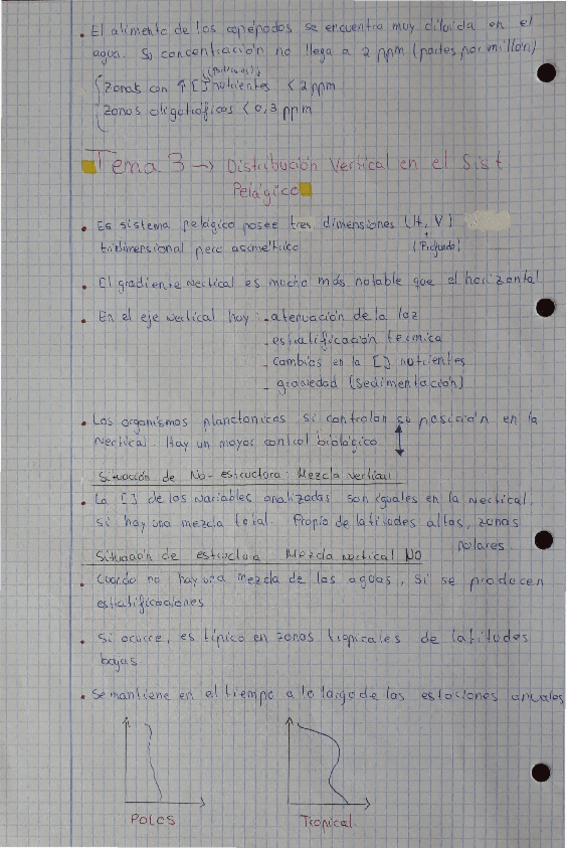 • El alimento de los copépodos se encuentra muy diluida en el
agua. Su concentración no llega a 2 ppm (partes por millón)
Zonas con ↑ [ ] nutrientes < 2 ppm
Zonas oligotróficos < 0,3 ppm
Tema 3 → Distribución Vertical en el Sist
Pelágico
• Es sistema pelágico posee tres dimensiones (H, V)
tridimensional pero asimétrico (Profundo)
• El gradiente vertical es mucho más notable que el horizontal
• En el eje vertical hay: - atenuación de la luz
- estratificación térmica
- cambios en la [ ] nutrientes
- gravedad (sedimentación)
• Los organismos planctónicos si controlan su posición en la
vertical. Hay un mayor control biológico
Situación de No-estructura: Mezcla vertical
• La [ ] de las variables analizadas son iguales en la vertical,
si hay una mezcla total. Propio de latitudes altas, zonas
polares.
Situación de estructura Mezcla vertical NO
• Cuando no hay una mezcla de las aguas, si se producen
estratificaciones
• Si ocurre, es típico en zonas tropicales de latitudes
bajas
• Se mantiene en el tiempo a lo largo de las estaciones anuales
Polos Tropical